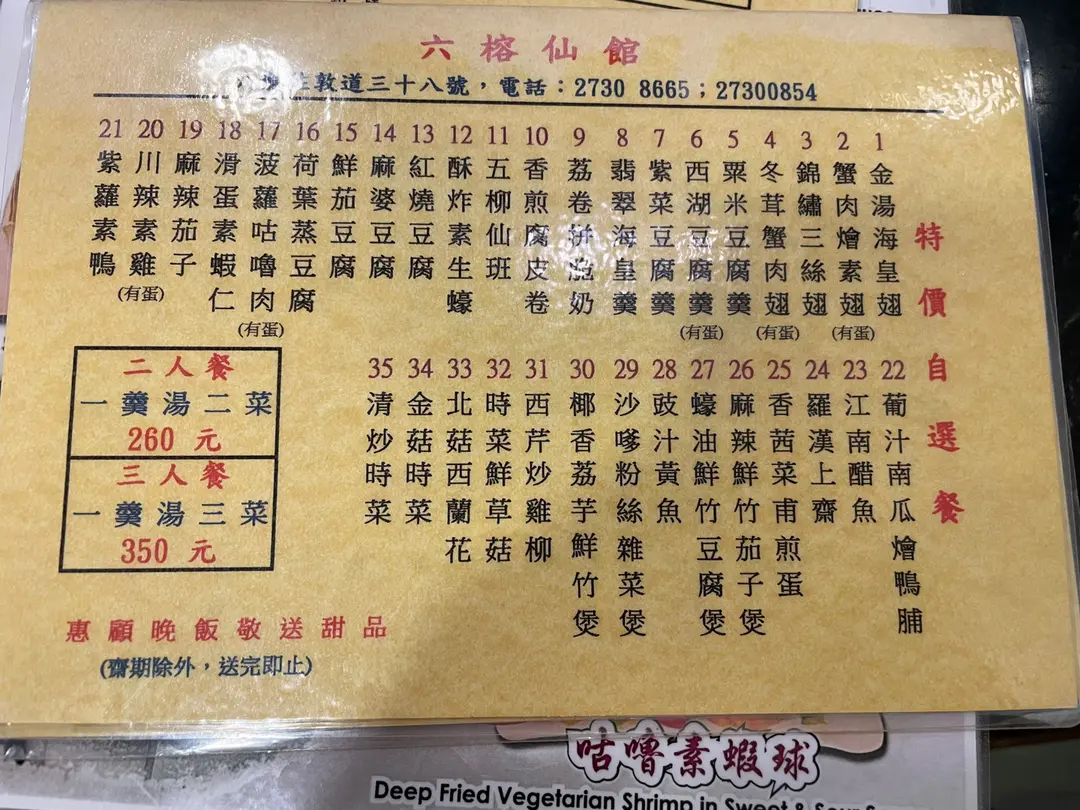 六榕仙館
敦道三十八號，電話：2730 8665；27300854
特價自選餐
1 金湯海皇翅
2 蟹肉燴素翅 (有蛋)
3 錦繡三絲翅
4 冬茸蟹肉翅 (有蛋)
5 粟米豆腐羹
6 西湖豆腐羹 (有蛋)
7 紫菜豆腐羹
8 翡翠海皇羹
9 荔卷拼脆奶
10 香煎腐皮卷
11 五柳仙班
12 酥炸素生蠔
13 紅燒豆腐
14 麻婆豆腐
15 鮮茄豆腐
16 荷葉蒸豆腐
17 菠蘿咕嚕肉 (有蛋)
18 滑蛋素蝦仁
19 麻辣茄子
20 川辣素雞 (有蛋)
21 紫蘿素鴨
22 葡汁南瓜燴鴨脯
23 江南醋魚
24 羅漢上齋
25 香茜菜甫煎蛋
26 麻辣鮮竹茄子煲
27 蠔油鮮竹豆腐煲
28 豉汁黃魚
29 沙嗲粉絲雜菜煲
30 椰香荔芋鮮竹煲
31 西芹炒雞柳
32 時菜鮮草菇
33 北菇西蘭花
34 金菇時菜
35 清炒時菜
二人餐
一羹湯二菜
260 元
三人餐
一羹湯三菜
350 元
惠顧晚飯敬送甜品
(齋期除外，送完即止)
咕嚕素蝦球
Deep Fried Vegetarian Shrimp in Sweet & Sour